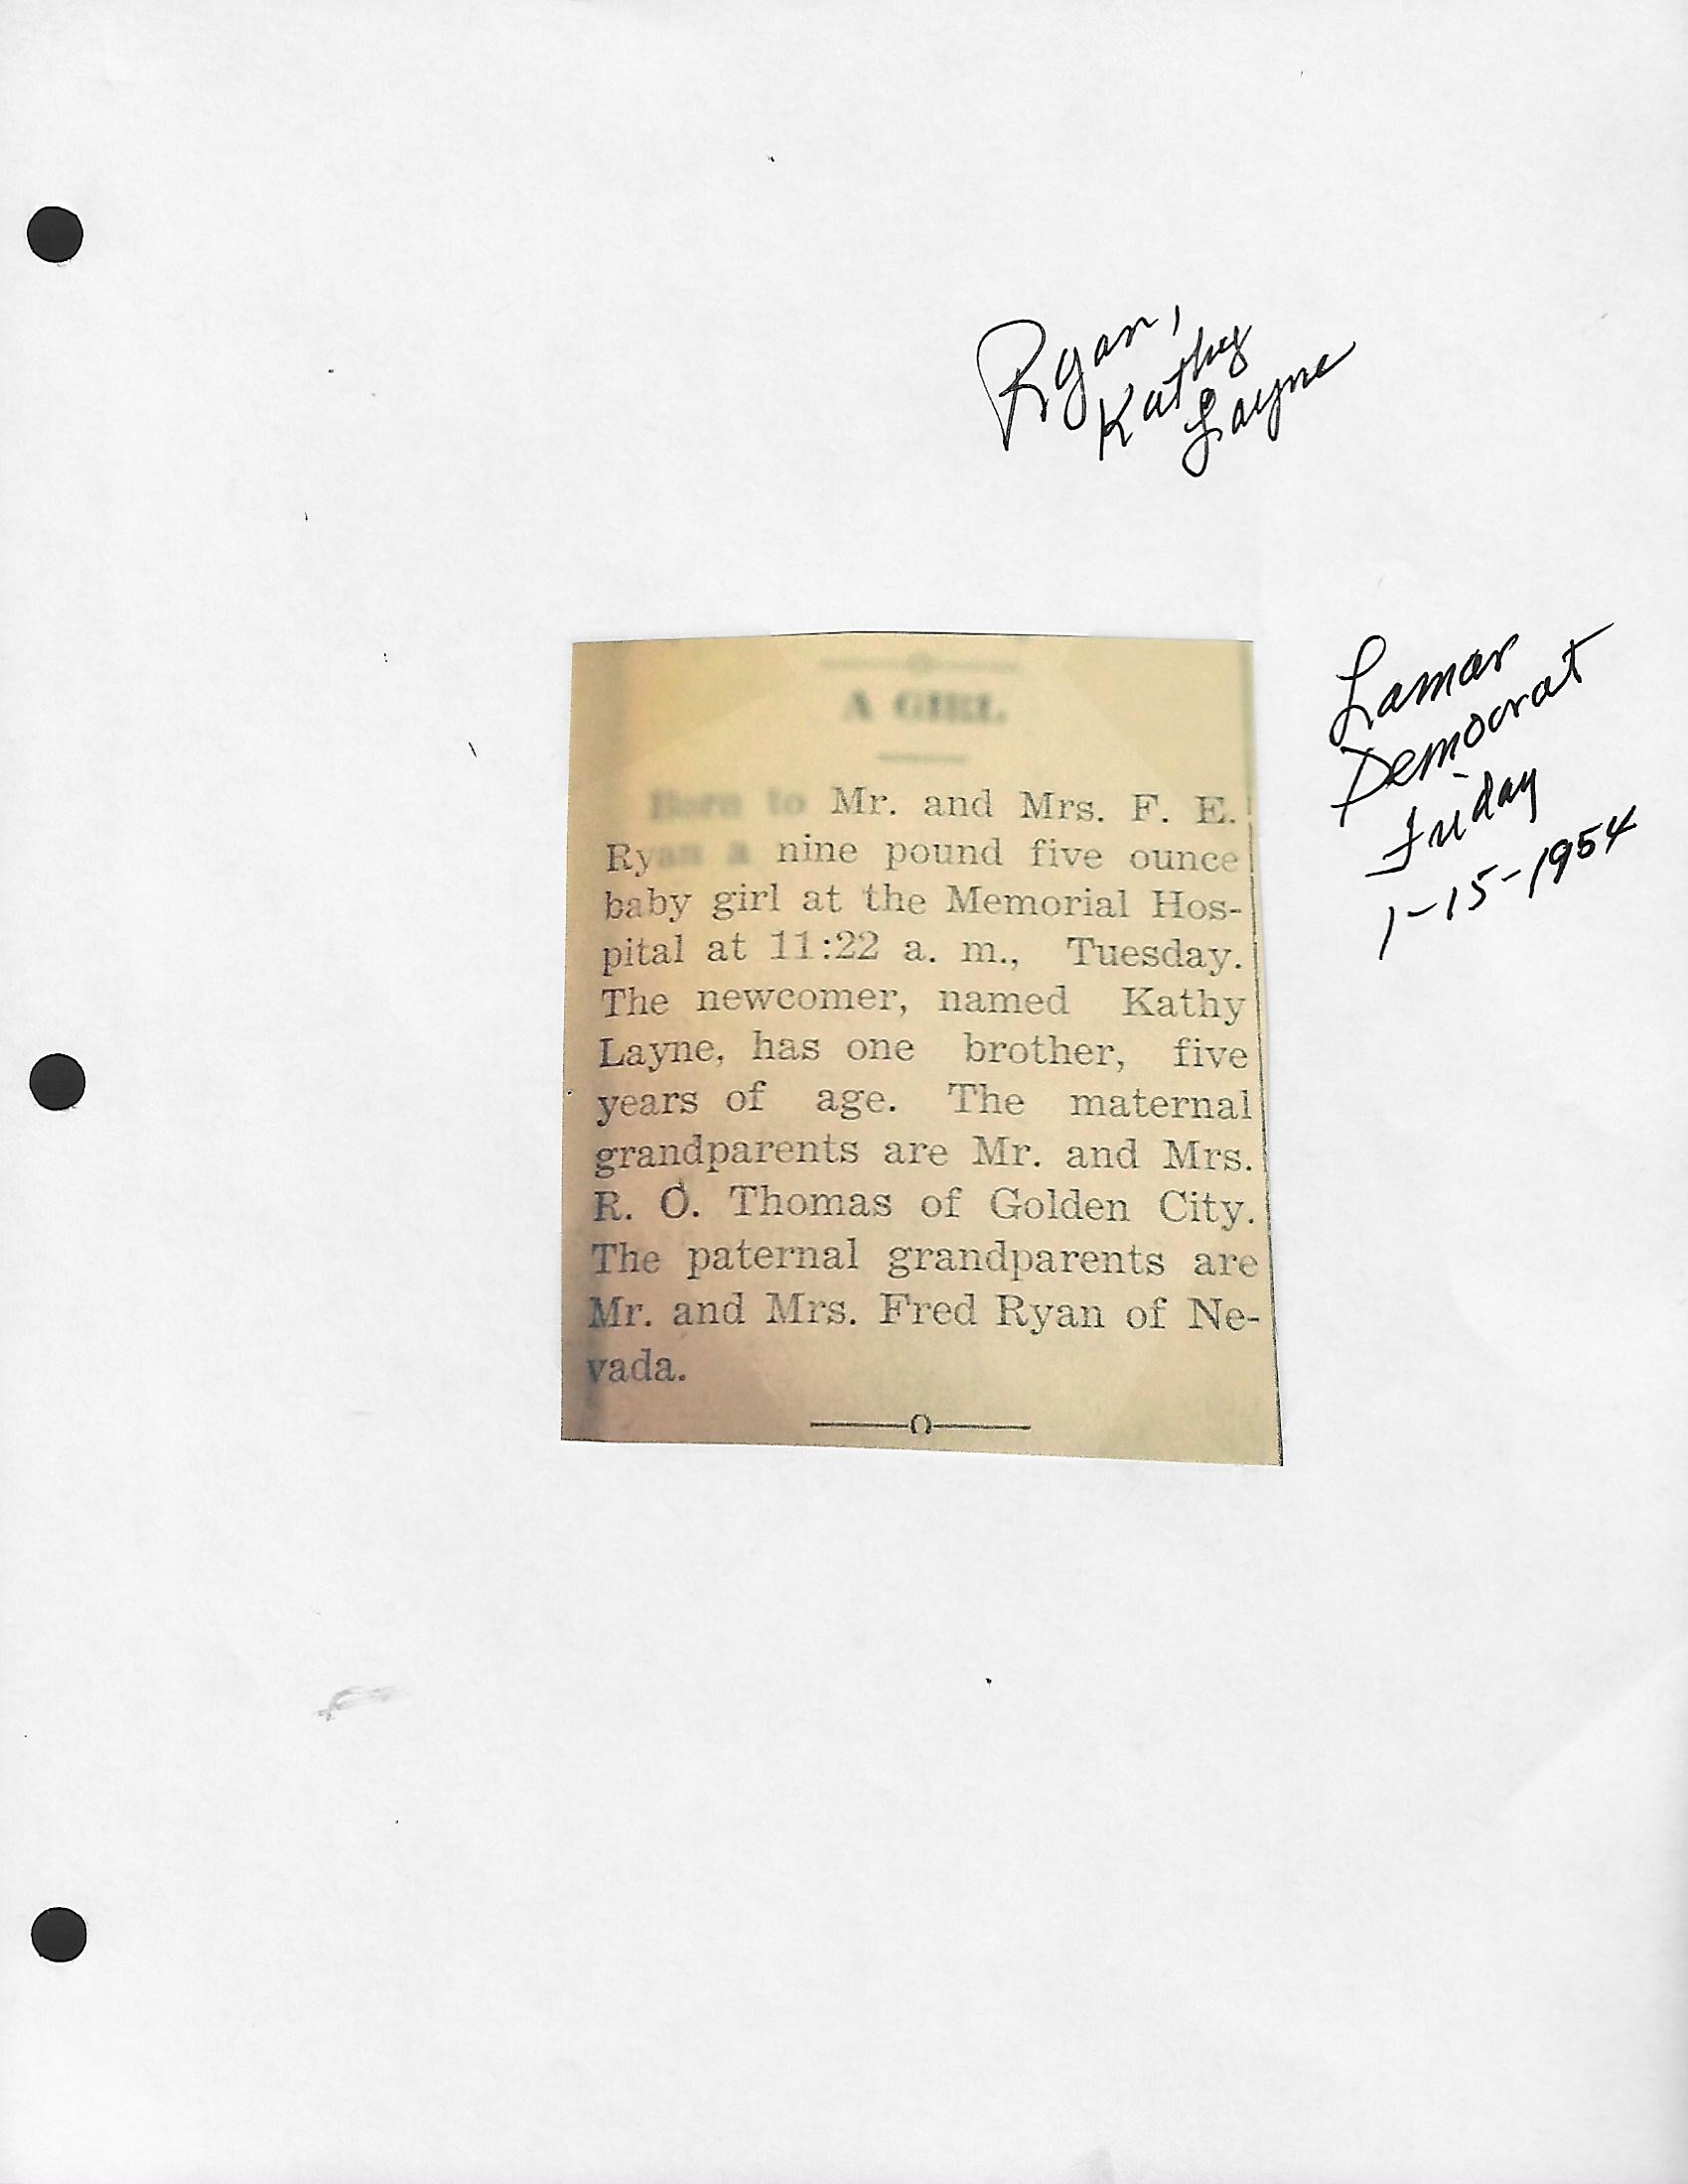 Ryan,
Kathy
Layne
Lamar
Democrat
Friday
1-15-1954
A GIRL
Born to Mr. and Mrs. F. E.
Ryan a nine pound five ounce
baby girl at the Memorial Hos-
pital at 11:22 a. m., Tuesday.
The newcomer, named Kathy
Layne, has one brother, five
years of age. The maternal
grandparents are Mr. and Mrs.
R. O. Thomas of Golden City.
The paternal grandparents are
Mr. and Mrs. Fred Ryan of Ne-
vada.